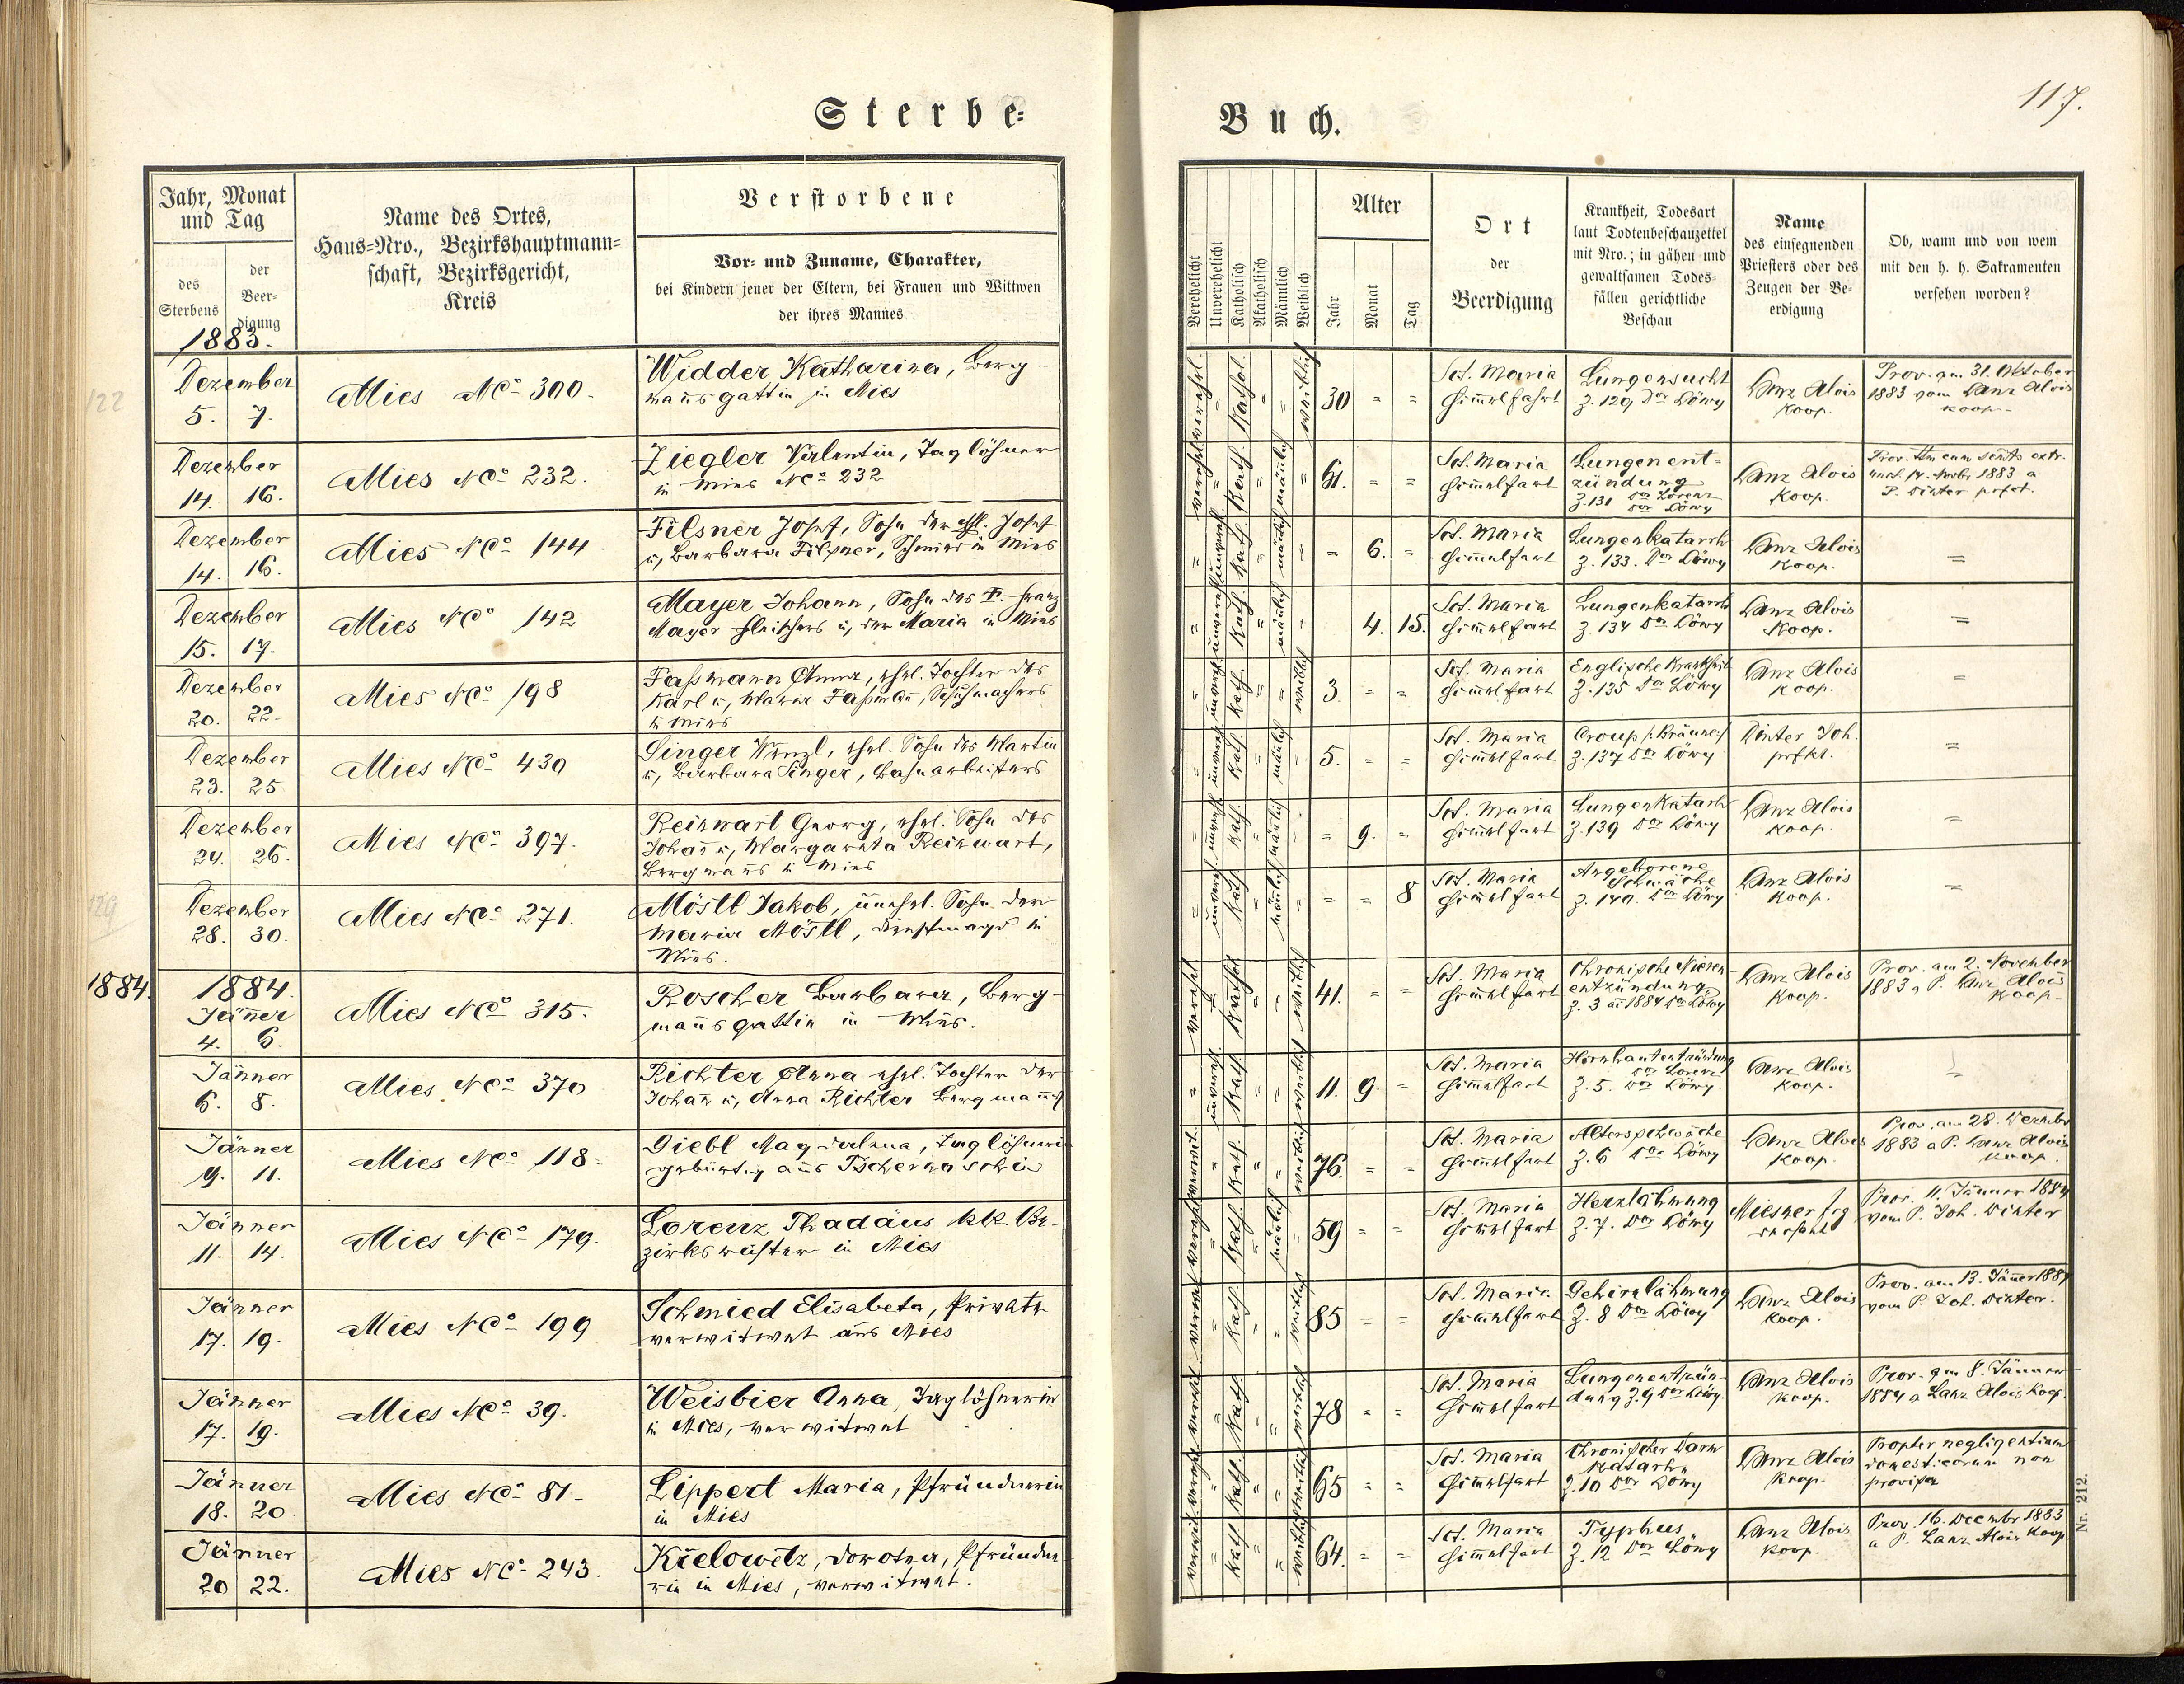 117.
Sterbe=
Buch.
Jahr, Monat
und Tag
des
Sterbens
der
Beer-
digung
Name des Ortes,
Haus=Nro., Bezirkshauptmann=
schaft, Bezirksgericht,
Kreis
Verstorbene
Vor- und Zuname, Charakter,
bei Kindern jener der Eltern, bei Frauen und Wittwen
der ihres Mannes
Verehelicht
Unverehelicht
Katholisch
Akatholisch
Männlich
Weiblich
Alter
Jahr
Monat
Tag
Ort
der
Beerdigung
Krankheit, Todesart
laut Todtenbeschauzettel
mit Nro.; in gähen und
gewaltsamen Todes-
fällen gerichtliche
Beschau
Name
des einsegnenden
Priesters oder des
Zeugen der Be-
erdigung
Ob, wann und von wem
mit den h. h. Sakramenten
versehen worden?
1883.
122
Dezember
5. 7.
Mies No 300.
Widder Katharina, Berg-
mañsgattin in Mies
verehel. = Kathol. = = weiblich
30 = =
Sct. Maria
Him̃elfahrt
Lungensucht
Z. 129 Dor Löwy
Lanz Alois
Koop.
Prov. am 31. Oktober
1883 vom Lanz Alois
Koop.
Dezember
14. 16.
Mies No 232.
Ziegler Valentin, Taglöhner
in Mies No 232
verehel. = Kath. = mäñlich =
61. = =
Sct. Maria
Him̃elfart
Lungenent-
zündung
Z. 131 Dor Lorenz
Dor Löwy
Lanz Alois
Koop.
1883 a
Dezember
14. 16.
Mies No 144.
Filsner Josef, Sohn der Josef
u, Barbara Filsner, Schmied in Mies
= Kath. = mäñlich =
= 6. =
Sct. Maria
Him̃elfart
Lungenkatarrh
Z. 133. Dor Löwy
Lanz Alois
Koop.
=
Dezember
15. 17.
Mies No 142
Mayer Johann, Sohn des Franz
Mayer Fleischers u, der Maria in Mies
= Kath. = mäñlich =
4. 15.
Sct. Maria
Him̃elfart
Lungenkatarrh
Z. 134 Dor Löwy
Lanz Alois
Koop.
=
Dezember
20. 22.
Mies No 198
Faßmann Anna, ehel. Tochter des
Karl u, Maria Faßmañ, Schuhmachers
in Mies
= Kath. = = weiblich
3. = =
Sct. Maria
Him̃elfart
Englische Krankheit
Z. 135 Dor Löwy
Lanz Alois
Koop.
=
Dezember
23. 25
Mies No 430
Singer Wenzl, ehel. Sohn des Martin
u, Barbara Singer, Bahnarbeiters
= Kath. = mäñlich =
5. = =
Sct. Maria
Him̃elfart
Croup /:Bräune:/
Z. 137 Dor Löwy
Dinter Joh.
=
Dezember
24. 26.
Mies No 397.
Reinwart Georg, ehel. Sohn des
Johañ u, Margareta Reinwart,
Bergmañs in Mies
= Kath. = mäñlich =
= 9. =
Sct. Maria
Him̃elfart
Lungenkatarh
Z. 139 Dor Löwy
Lanz Alois
Koop.
=
129
Dezember
28. 30.
Mies No 271.
Möstl Jakob, unehel. Sohn der
Maria Möstl, Dienstmagd in
Mies.
= Kath. = mäñlich =
= = 8
Sct. Maria
Him̃elfart
Angeborene
Schwäche
Z. 140. Dor Löwy
Lanz Alois
Koop.
=
1884.
1884.
Jäñner
4. 6.
Mies No 315.
Roscher Barbara, Berg-
mañsgattin in Mies.
verehel. = Kathol. = = weiblich
41. = =
Sct. Maria
Him̃elfart
Chronische Nieren-
entzündung
Z. 3 1884 Dor Löwy
Lanz Alois
Koop.
Prov. am 2. November
1883 a P. Lanz Alois
Koop.
Jänner
6. 8.
Mies No 370
Richter Anna ehel. Tochter der
Johañ u, Anna Richter Bergmañs
= unverehl. Kath. = = weiblich
11. 9 =
Sct. Maria
Him̃elfart
Hirnhautentzündung
Dor Lorenz
Z. 5. Dor Löwy
Lanz Alois
Koop.
=
Jänner
9. 11.
Mies No 118
Giebl Magdalena, Taglöhnerin
gebürtig aus Tschernoschin
verwit. = Kath. = = weiblich
76. = =
Sct. Maria
Him̃elfart
Altersschwäche
Z. 6 Dor Löwy
Lanz Alois
Koop.
Prov. am 28. Dezembr
1883 a P. Lanz Alois
Koop.
Jänner
11. 14.
Mies No 179.
Lorenz Thadäus kk. Be-
zirksrichter in Mies
= Kath. = mäñlich =
59 = =
Sct. Maria
Him̃elfart
Herzlähmung
Z. 7. Dor Löwy
Prov. 11. Jänner 1884
vom P. Joh. Dinter
Jänner
17. 19.
Mies No 199
Schmied Elisabeta, Private
verwitwet aus Mies
= Kath. = = weiblich
85 = =
Sct. Maria
Him̃elfart
Gehirnlähmung
Z. 8 Dor Löwy
Lanz Alois
Koop.
Prov. am 13. Jäner 1884
vom P. Joh. Dinter.
Jänner
17. 19.
Mies No 39.
Weisbier Anna, Taglöhnerin
in Mies, verwitwet
= Kath. = = weiblich
78 = =
Sct. Maria
Him̃elfart
Lungenentzün-
dung Z. 9 Dor Löwy.
Lanz Alois
Koop.
Prov. am 8. Jänner
1884 a Lanz Alois Koop.
Jänner
18. 20.
Mies No 81
Lippert Maria, Pfründnerin
in Mies
= Kath. = = weiblich
65 = =
Sct. Maria
Him̃elfart
Chronischer Darm
Katarrh
Z. 10 Dor Löwy
Lanz Alois
Koop.
Propter negligentiam
domesticorum non
provisa
Jänner
20 22.
Mies No 243.
Kielowetz, Dorotea, Pfründne-
rin in Mies, verwitwet.
= Kath. = = weiblich
64. = =
Sct. Maria
Him̃elfart
Typhus
Z. 12 Dor Löwy
Lanz Alois
Koop.
Prov. 16. Decembr 1883
a P. Lanz Alois Koop
Nr. 212.